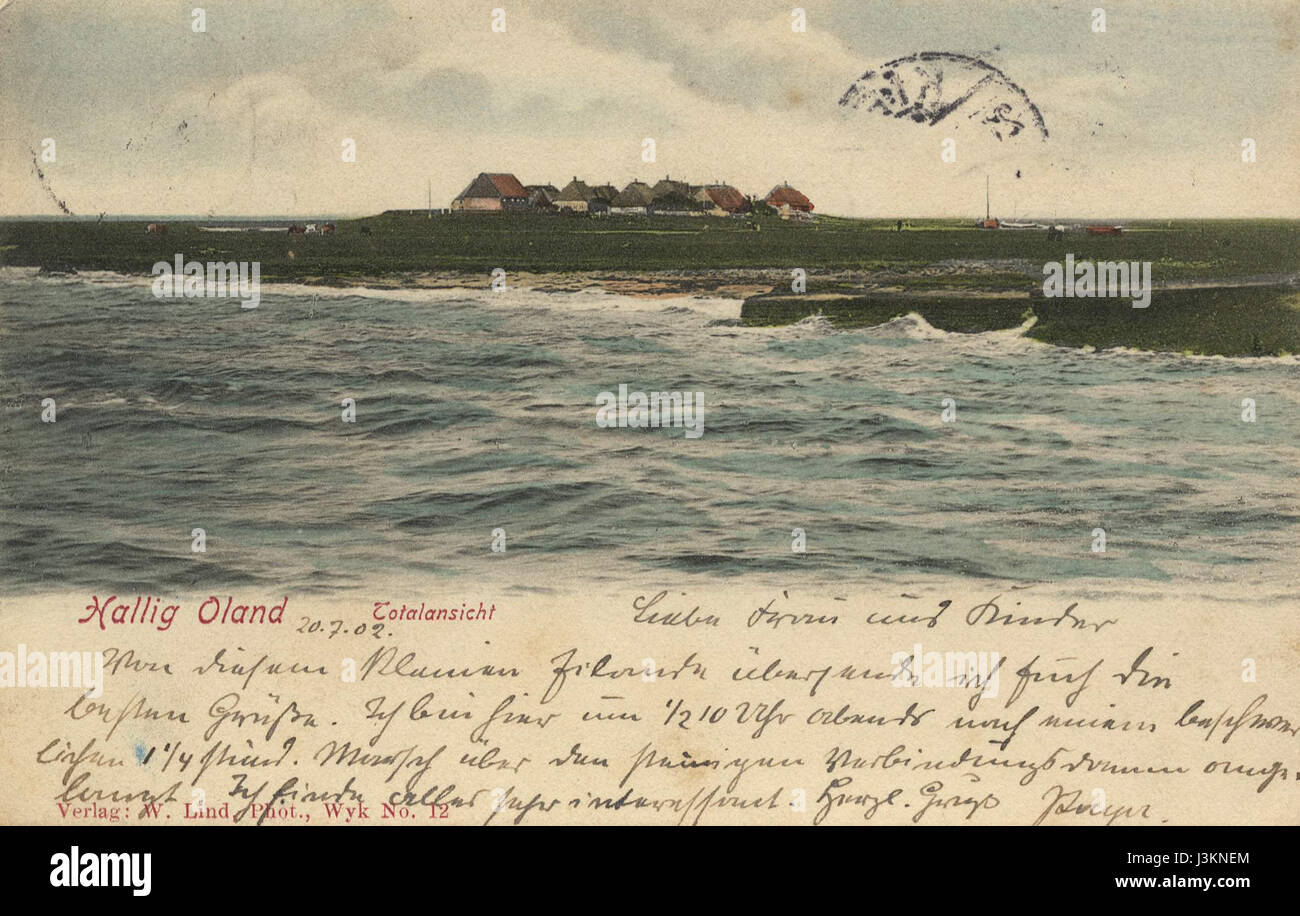 Hallig Oland
Totalansicht
20.7.02.
Liebe Frau und Kinder
Von diesem kleinen Eilande übersende ich Euch die
besten Grüße. Ich bin hier um 1/2 10 Uhr abends nach einem beschwer
lichen 1 1/4 stünd. Marsch über den steinigen Verbindungsdamm ange-
langt. Ich finde alles sehr interessant. Herzl. Gruß
Verlag: W. Lind, Phot., Wyk No. 12
alamy
alamy
Image ID: J3KNEM
www.alamy.com